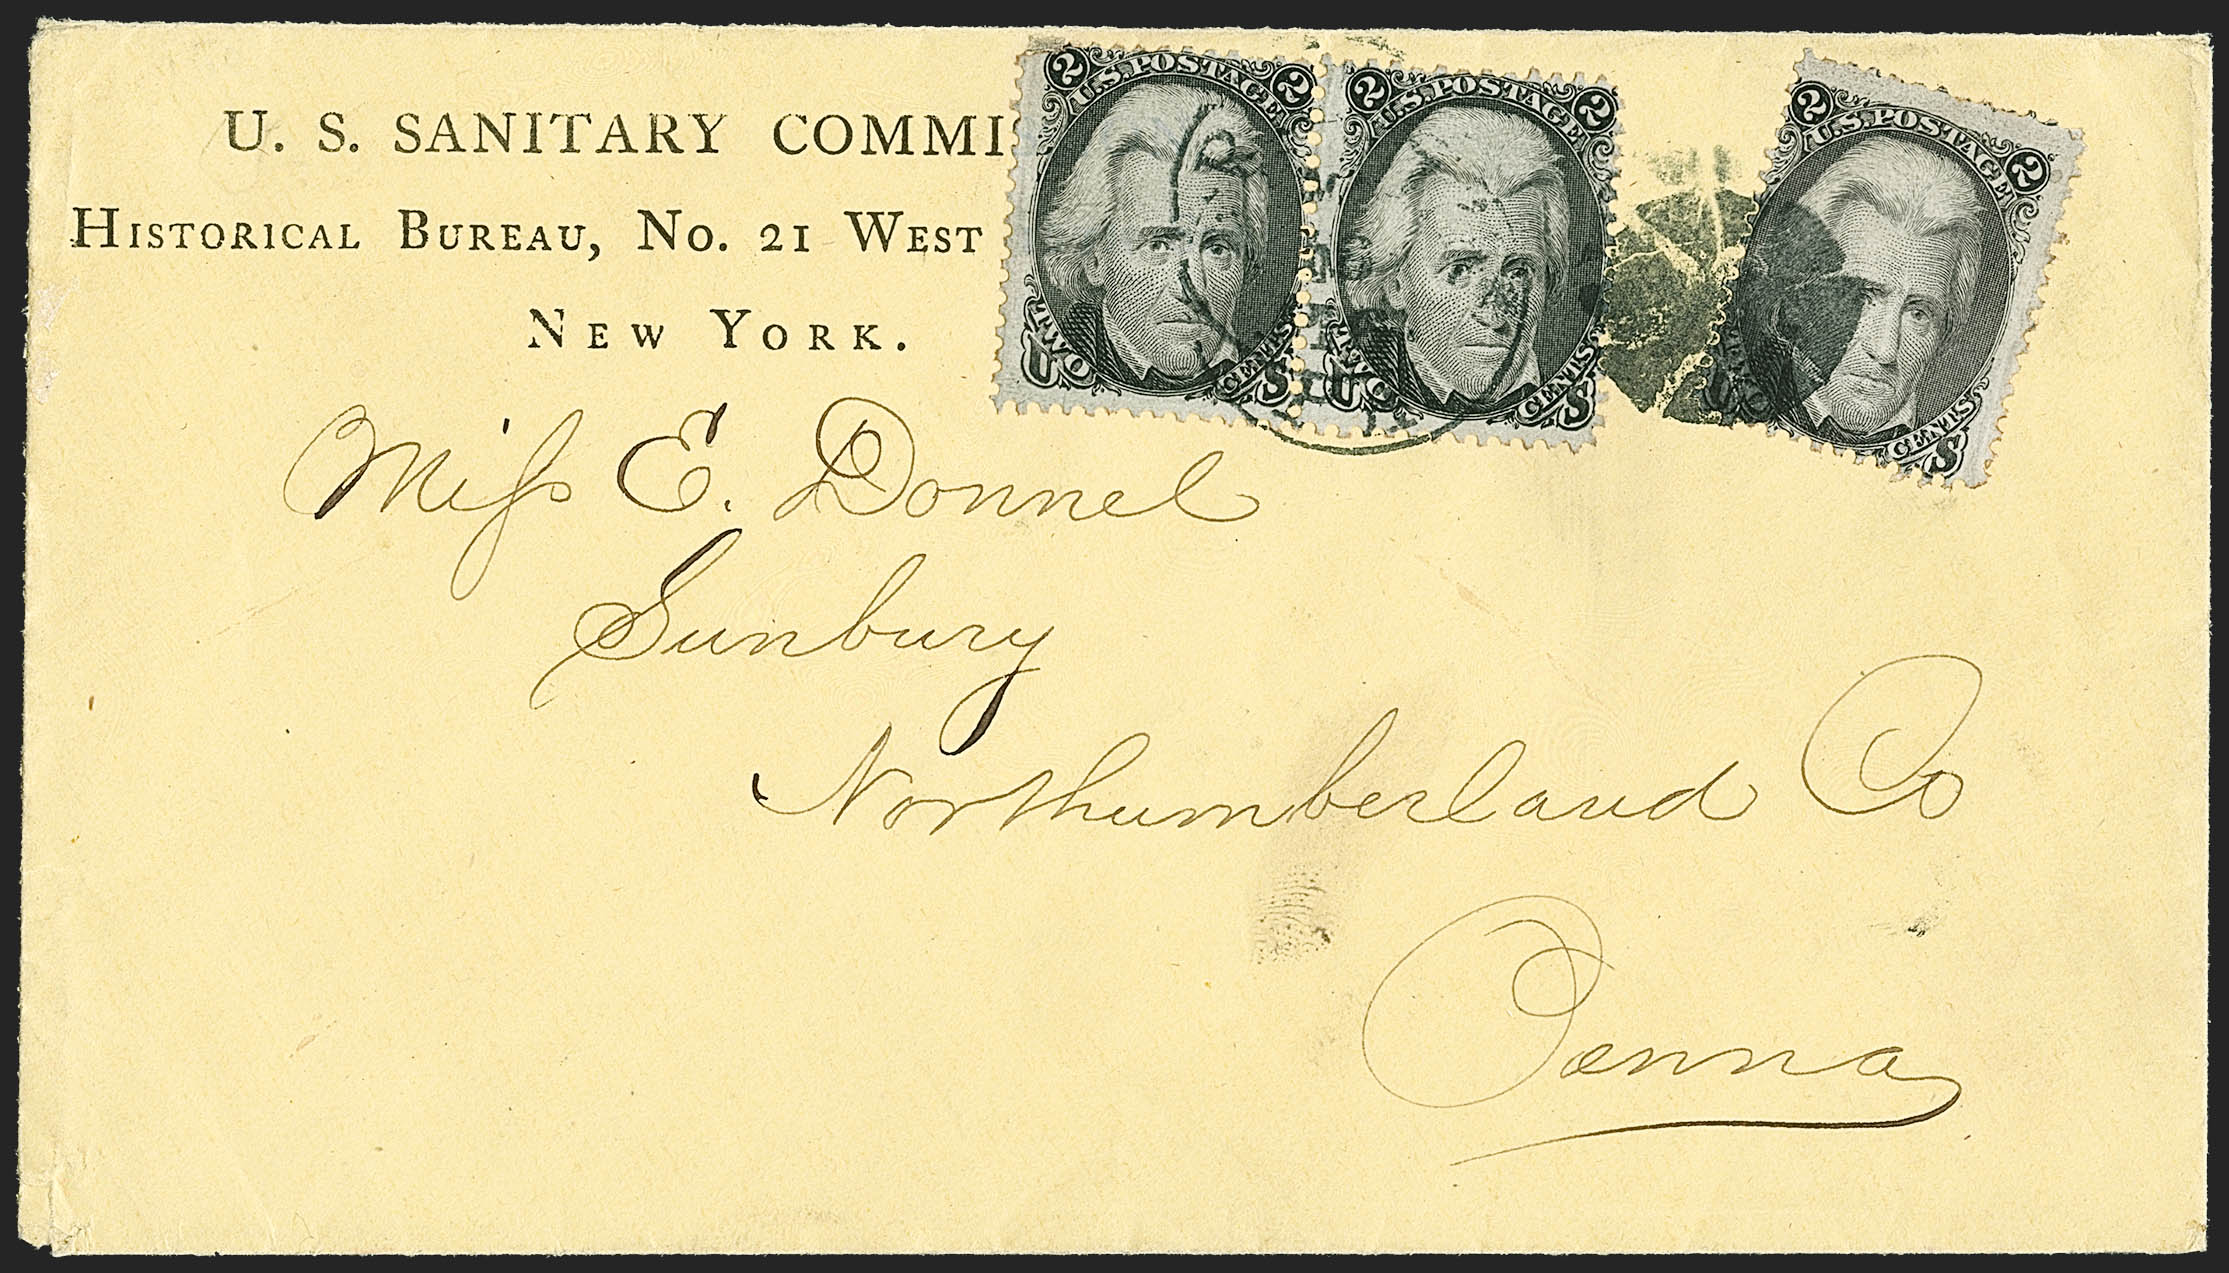 U. S. SANITARY COMMI
HISTORICAL BUREAU, NO. 21 WEST
NEW YORK.
2 U.S. POSTAGE 2
TWO CENTS
U S
2 U.S. POSTAGE 2
TWO CENTS
U S
2 U.S. POSTAGE 2
TWO CENTS
U S
Miss E. Donnel
Sunbury
Northumberland Co
Penna